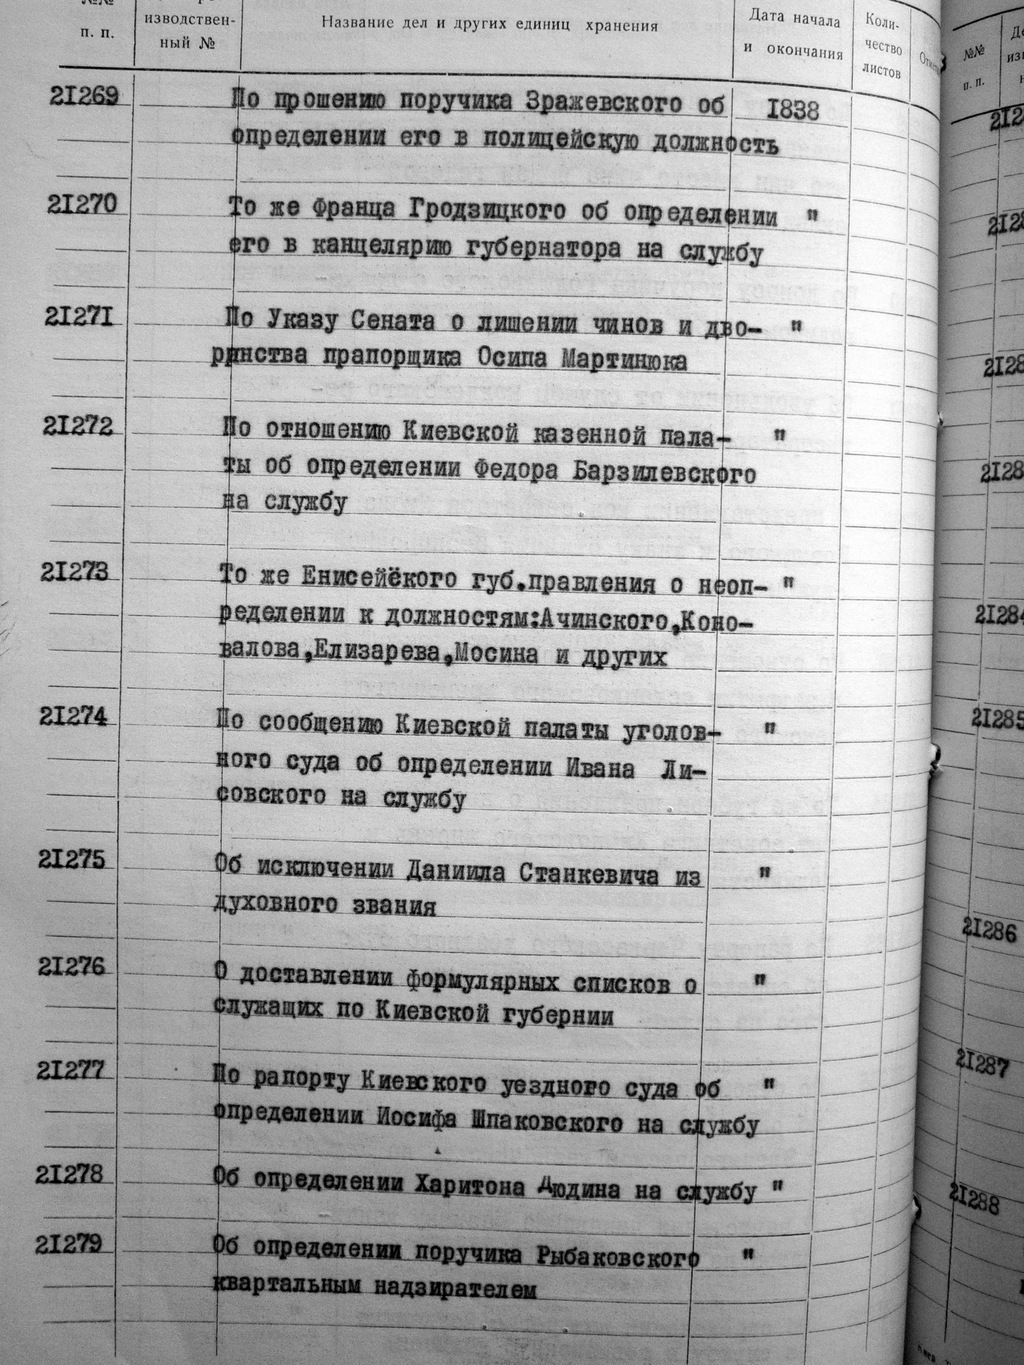 №№
п. п.
изводствен-
ный №
Название дел и других единиц хранения
Дата начала
и окончания
Коли-
чество
листов
21269 По прошению поручика Зражевского об 1838
определении его в полицейскую должность
21270 То же Франца Гродзицкого об определении "
его в канцелярию губернатора на службу
21271 По Указу Сената о лишении чинов и дво- "
рянства прапорщика Осипа Мартинюка
21272 По отношению Киевской казенной пала- "
ты об определении Федора Барзилевского
на службу
21273 То же Енисейского губ.правления о неоп- "
ределении к должностям:Ачинского,Коно-
валова,Елизарева,Мосина и других
21274 По сообщению Киевской палаты уголов- "
ного суда об определении Ивана Ли-
совского на службу
21275 Об исключении Даниила Станкевича из "
духовного звания
21276 О доставлении формулярных списков о "
служащих по Киевской губернии
21277 По рапорту Киевского уездного суда об "
определении Иосифа Шпаковского на службу
21278 Об определении Харитона Дюдина на службу "
21279 Об определении поручика Рыбаковского "
квартальным надзирателем
№№
п. п.
21284
21285
21286
21287
21288